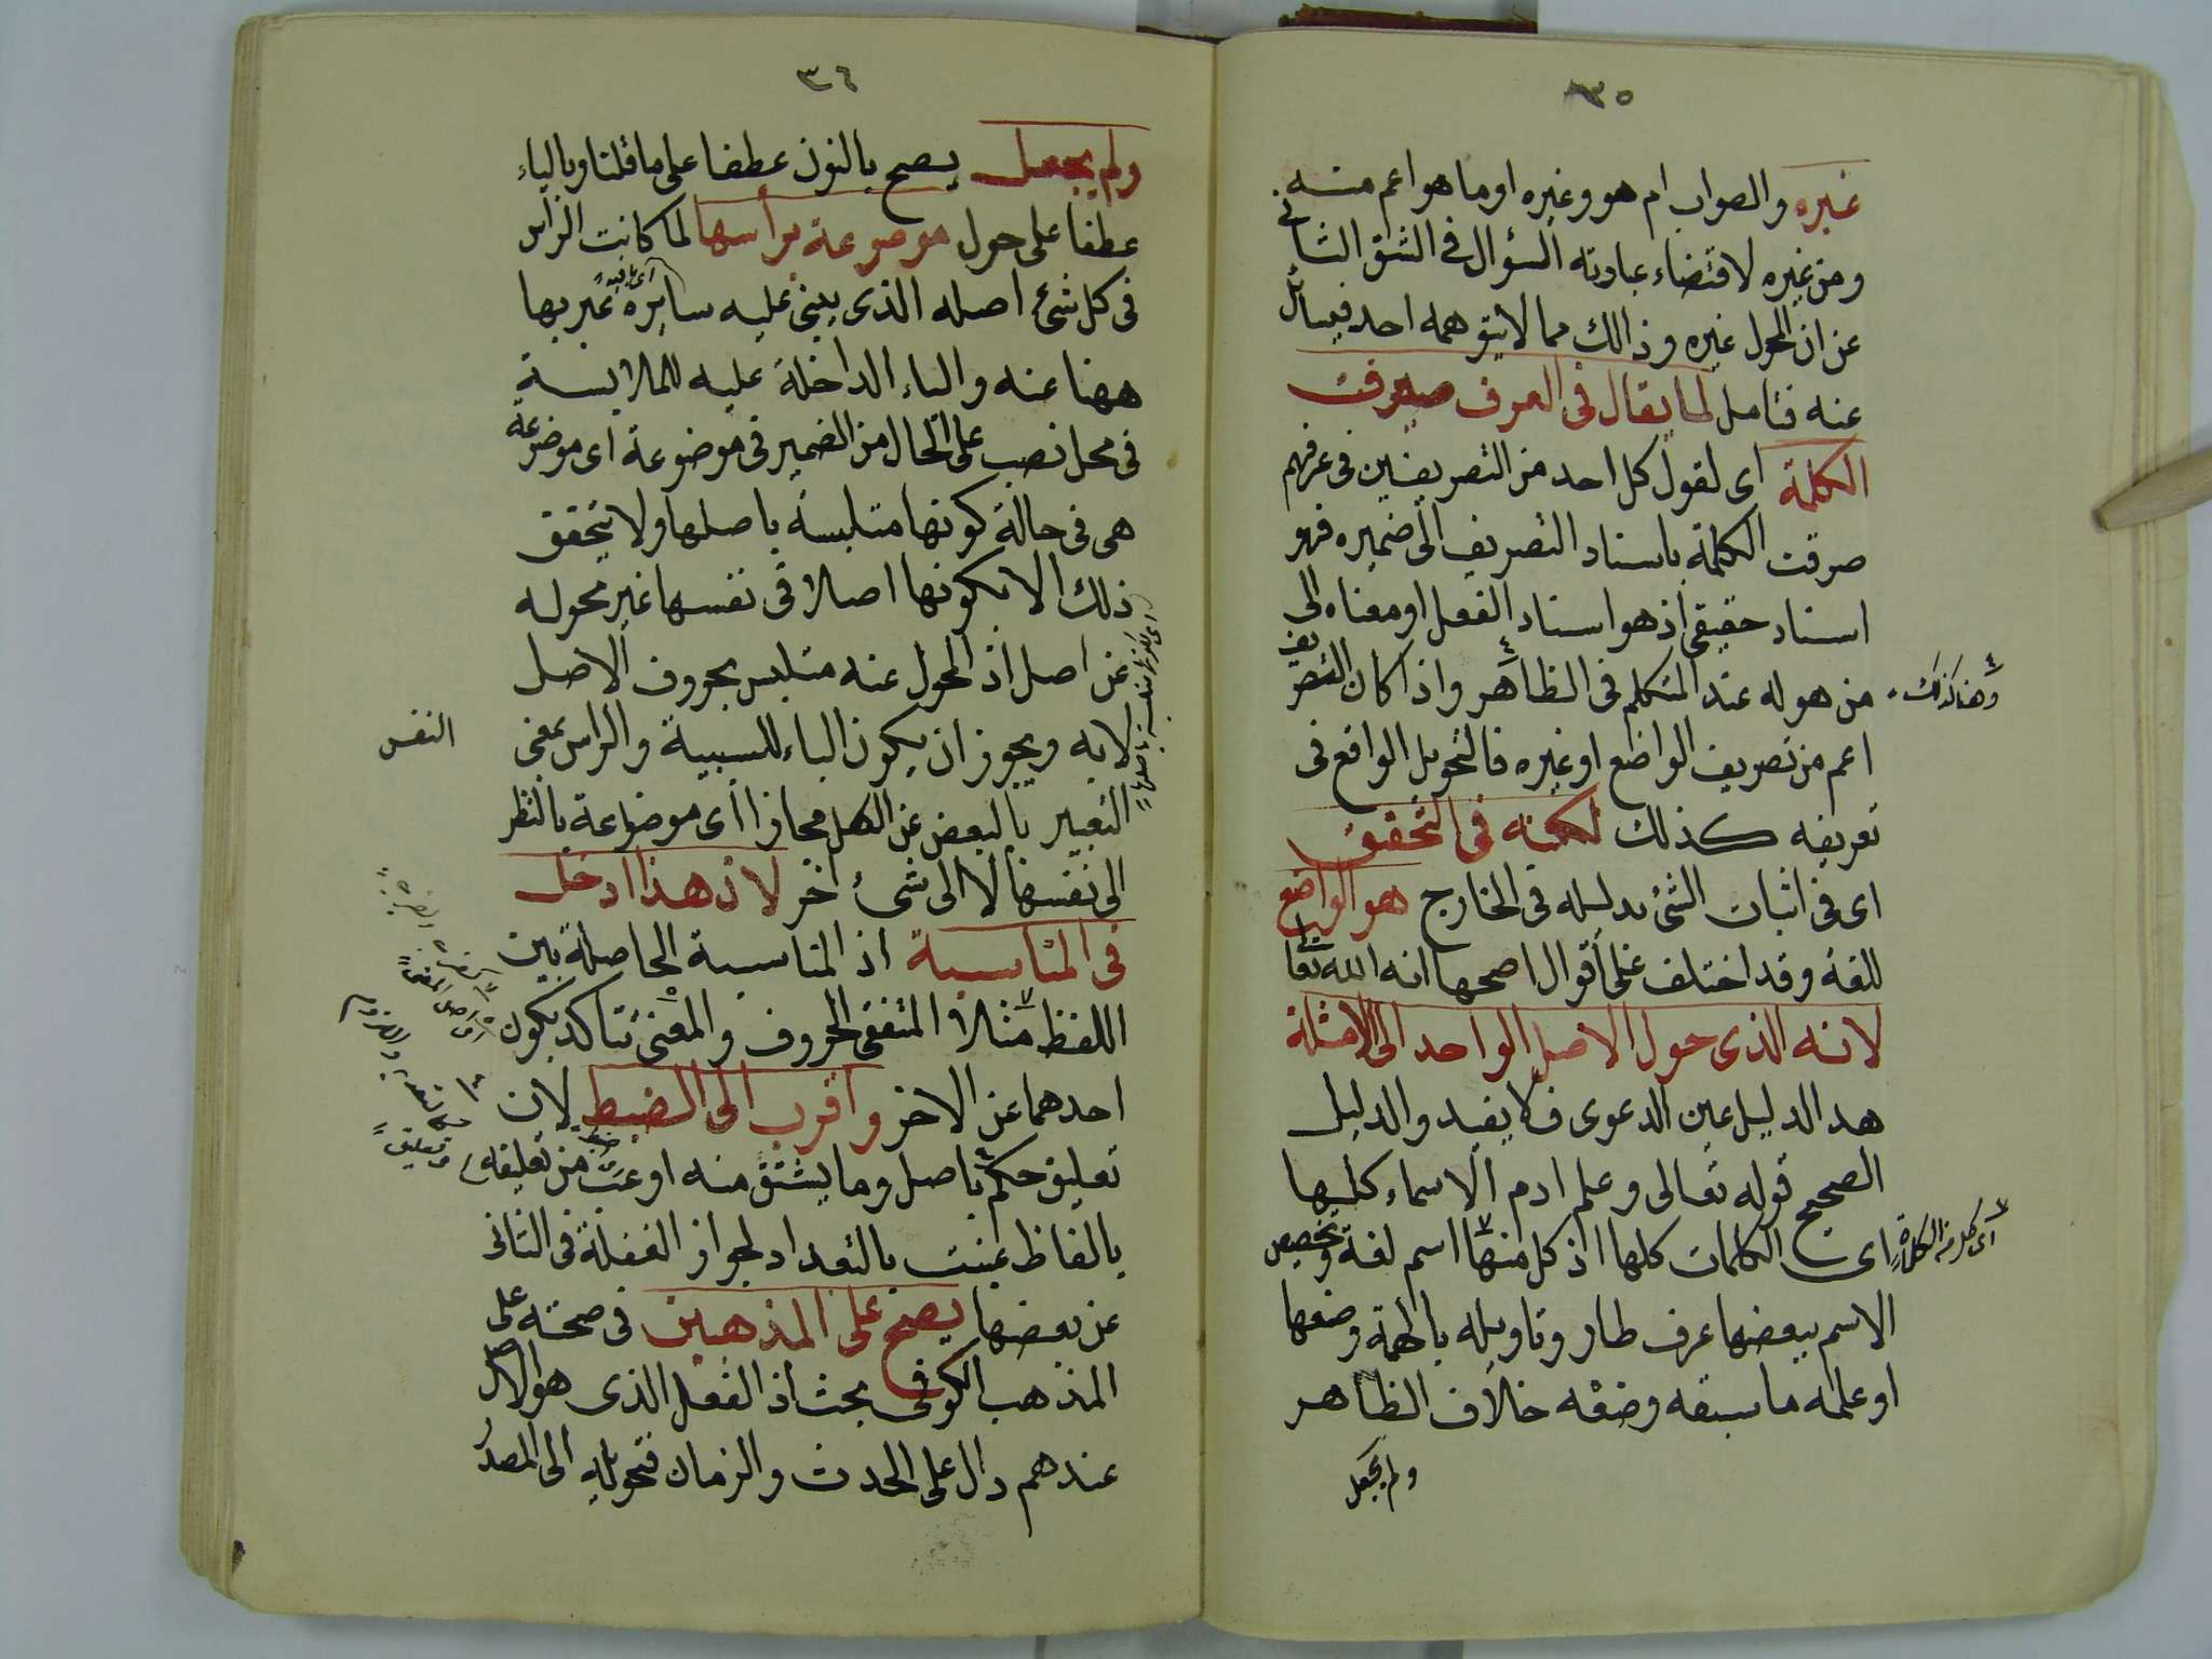 ٣٥
غيره والصواب ام هو وغيره او ما هو اعم منه
ومن غيره لاقتضاء عبارته السؤال في الشق الثاني
عن ان المحول غيره وذالك مما لا يتوهمه احد فيسأل
عنه فتامل لما يقال في العرف صرفت
الكلمة اى لقول كل احد من التصريفين في عرفهم
صرفت الكلمة باسناد التصريف الى ضميره فهو
اسناد حقيقى اذ هو اسناد الفعل او معناه الى
من هو له عند المتكلم في الظاهر واذا كان التصريف
وهنا كذلك
اعم من تصريف الواضع او غيره فالتحويل الواقع فى
تعريفه كذلك لكنه فى التحقيق
اى فى اثبات الشئ بدليله فى الخارج هو الواضع
للغة وقد اختلف على اقوال اصحها انه الله تعا
لانه الذى حول الاصل الواحد الى الامثلة
هذ الدليل عين الدعوى فلا يفيد والدليل
الصحيح قوله تعالى وعلم ادم الاسماء كلها
اى الكلمات كلها اذ كل منها اسم لغة وتخصيص
اى كل من الكلمات
الاسم ببعضها عرف طار وتاويله بالهمة وضعها
او علمه ما سبقه وضعه خلاف الظاهر
ولم يجعل
٣٦
ولم يجعل يصح بالنون عطفا على ما قلنا وبالياء
عطفا على حول موضوعة برأسها لما كانت الراس
فى كل شئ اصله الذى يبنى عليه سايره عبر بها
اى باقيه
ههنا عنه والباء الداخلة عليه للملابسة
فى محل نصب على الحال من الضمير فى موضوعة اى موضوعة
هى فى حالة كونها متلبسة باصلها ولا يتحقق
ذلك الا بكونها اصلا فى نفسها غير محوله
عن اصل اذ المحول عنه متلبس بحروف الاصل
لا به ويجوز ان يكون الباء للسببية والراس بمعنى
النفس
التعبير بالبعض عن الكل مجازا اى موضوعة بالنظر
الى نفسها لا الى شئ اخر لان هذا ادخل
فى المناسبة اذ المناسبة الحاصلة بين
اللفظ مثلا المتفقى الحروف والمعنى تتاكد بكون
احدهما عن الاخر واقرب الى الضبط لان
تعليق حكم باصل وما يشتق منه او عنه من تعليقه
بالفاظ عينت بالتعداد لجواز الغفلة فى الثانى
عن بعضها يصح على المذهبين فى صحته على
المذهب الكوفى بحث اذ الفعل الذى هو الاصل
عندهم دال على الحدث والزمان فتحويله الى المصدر